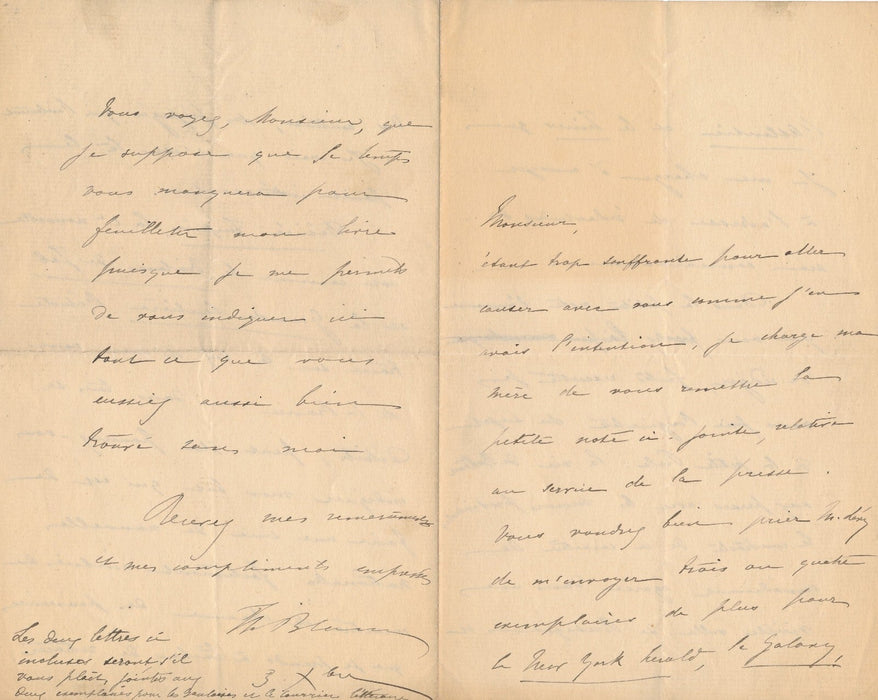 Monsieur,
étant trop souffrante pour aller
causer avec vous comme j'en
avais l'intention, je charge ma
mère de vous remettre la
petite note ci-jointe, relative
au service de la presse.
Vous voudrez bien prier M. Lévy
de m'envoyer trois ou quatre
exemplaires de plus pour
le New York herald, le Galaxy,
Vous voyez, Monsieur, que
je suppose que le temps
vous manquera pour
feuilleter mon livre
puisque je me permets
de vous indiquer ici
tout ce que vous
eussiez aussi bien
trouvé sans moi
Recevez mes remerciements
et mes compliments empressés
Th Blanc
Les deux lettres ci
incluses seront s'il
vous plaît, jointes aux
deux exemplaires pour le Gaulois et le Courrier littéraire
3 Xbre